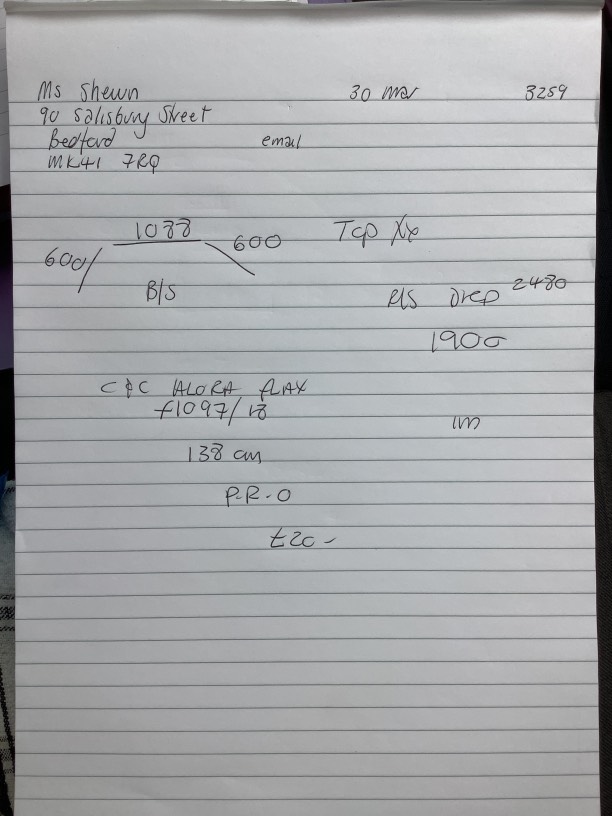 Ms Shewn 30 Mar 3259
90 Salisbury Street
Bedford email
MK41 7RQ
1088
600 600 Top
B/S
R/S Drop 2480
1900
C&C ALORA FLAX
F1097/18
1m
138 cm
P.R.O
£20-